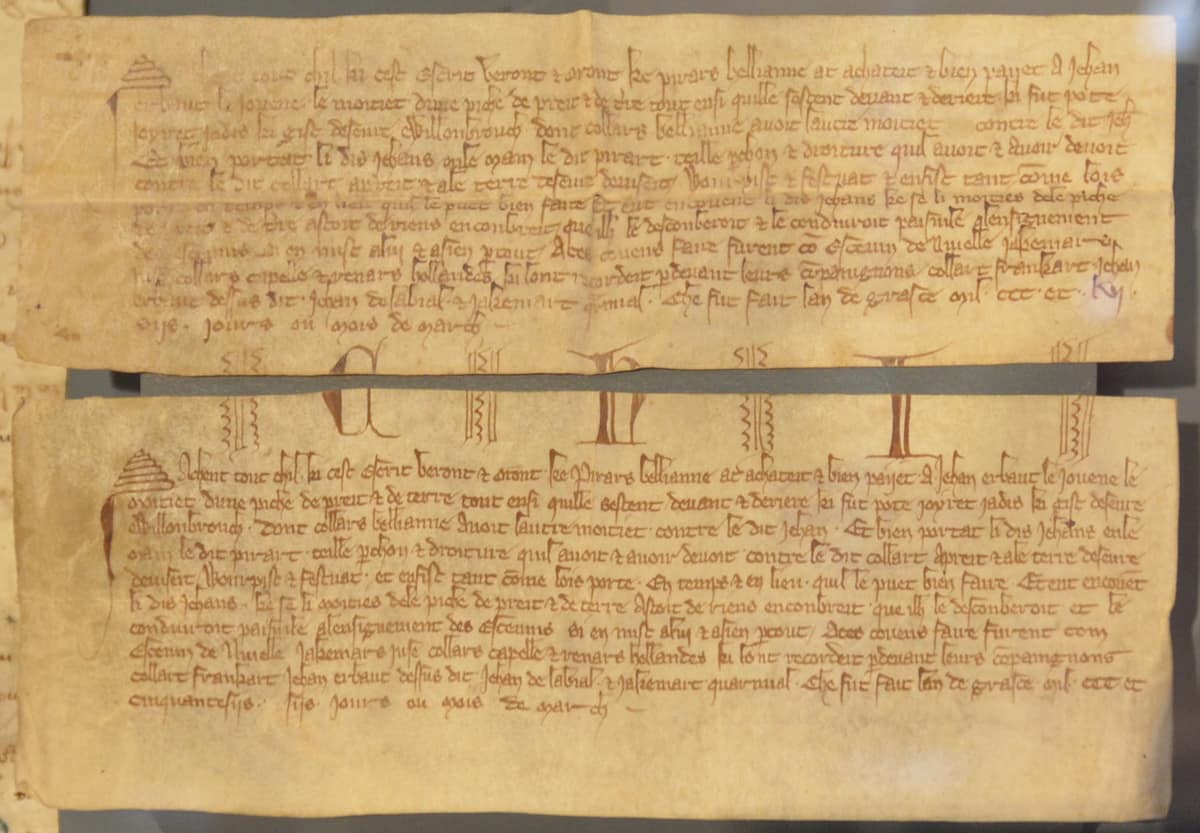 chil ki cest Escrit veront & oront ke pirars bellianne at achateit & bien paiiet A Jehan
erbaut li Jovene le moitiet dune piche de preit & de t're tout ensi quille sestent devant & deriere ki fut pote
Joyret jadis ki gist deseure Willonbrouch dont collars bellianne avoit lautre moitiet contre le dit Jeh
Et bien portat li dis Jehans enle main le dit pirart teille p'chon & droiture quil avoit & avoir devoit
contre le dit collart apreit & ale terre deseure deviseit Woirpist & festuat & enfist tant come lois
porte en temps & en lieu quil le puet bien faire Et eut encovent li dis Jehans ke se li moities dele piche
de preit & de t're astoit de riens enconbreit que ilh le desconberoit & le conduiroit paisiule p lensignement
des Eskevins si en mist alui & asien p'tout Aces covens faire furent co Escevin de Nivelle Jakemars
Juse collars capelle & renars hollandes ki lont recordeit p'devant leurs cōpaingnons collart frankart Jehan
erbaut dessus dit Jehan de labial & Jakemart quarnial Che fut fait lan de grasce mil ccc et
siis jours ou mois de march
A C I
Achent tout chil ki cest Escrit veront & oront ke Pirars bellianne at achateit & bien paiiet A Jehan erbaut le Jovene le
moitiet dune piche de preit & de terre tout ensi quille sestent devant & deriere ki fut pote Joyret jadis ki gist deseure
Willonbrouch Dont collars bellianne Avoit lautre moitiet contre le dit Jehan Et bien portat li dis Jehans enle
main le dit pirart teille p'chon & droiture quil avoit & avoir devoit contre le dit collart Apreit & ale terre deseure
deviseit Woirpist & festuat et enfist tant cōme lois porte En temps & en lieu quil le puet bien faire Et ent encovet
li dis Jehans ke se li moities dele piche de preit & de terre Astoit de riens enconbreit que ilh le desconberoit et le
conduiroit paisiule alensignement des Escevins si en mist alui & asien p'tout Aces covens faire furent com
Escevin de Nivelle Jakemars Juse collars capelle & renars hollandes ki lont recordeit p'devant leurs cōpaingnons
collart frankart Jehan erbaut dessus dit Jehan de labial & Jakemart quarnial Che fut fait lan de grasce mil ccc et
cinquantesiis siis jours ou mois de march